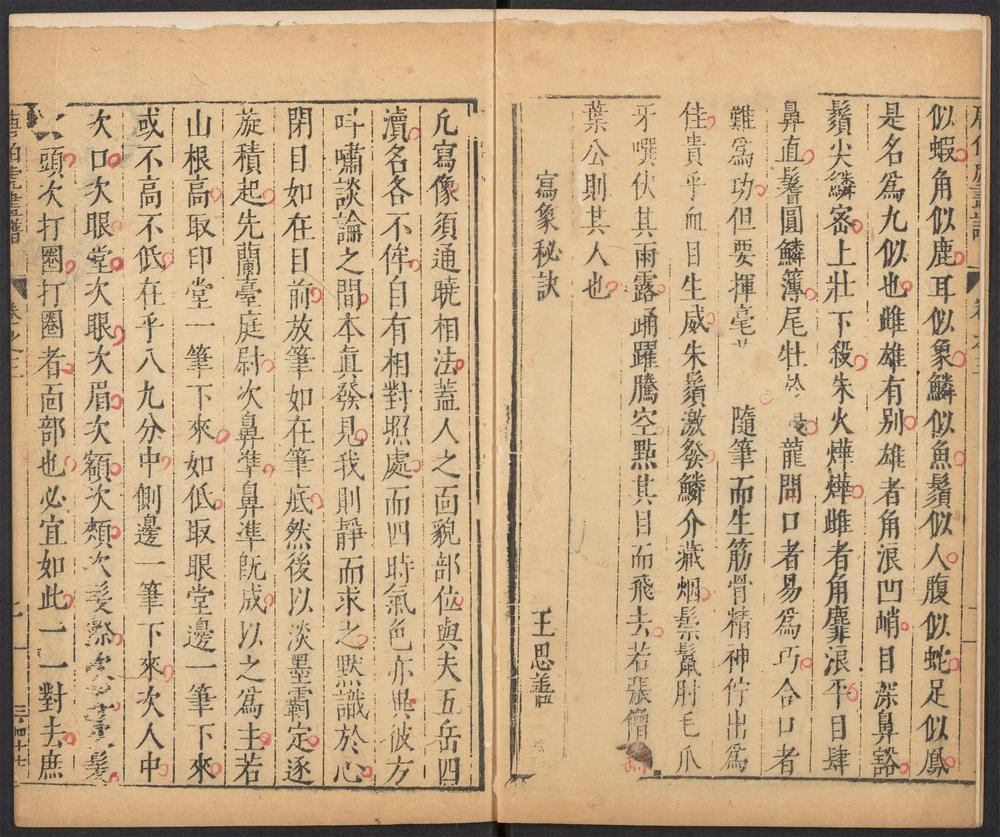 似蝦角似鹿耳似象鱗似魚鬚似人腹似蛇足似鳳
是名爲九似也雌雄有别雄者角浪凹峭目深鼻豁
鬚尖鱗密上壯下殺朱火燁燁雌者角靡浪平目肆
鼻直鬐圓鱗簿尾壯於 龍開口者易爲巧合口者
難爲功但要揮毫 隨筆而生筋骨精神佇出爲
佳貴乎血目生威朱鬚激發鱗介藏烟鬃鬣肘毛爪
牙噀伏其雨露踊躍騰空點其目而飛去若張僧
葉公則其人也
寫象秘訣
王思善
凡寫像須通曉相法蓋人之面貌部位與夫五岳四
瀆各各不侔自有相對照處而四時氣色亦異彼方
叫嘯談論之間本真發見我則靜而求之默識於心
閉目如在目前放筆如在筆底然後以淡墨霸定逐
旋積起先蘭臺庭尉次鼻準鼻準既成以之爲主若
山根高取印堂一筆下來如低取眼堂邊一筆下來
或不高不低在乎八九分中側邊一筆下來次人中
次口次眼堂次眼次眉次額次頰次髮際次耳次髮
次頭次打圈打圈者面部也必宜如此一一對去庶
唐伯虎畫譜 卷之三